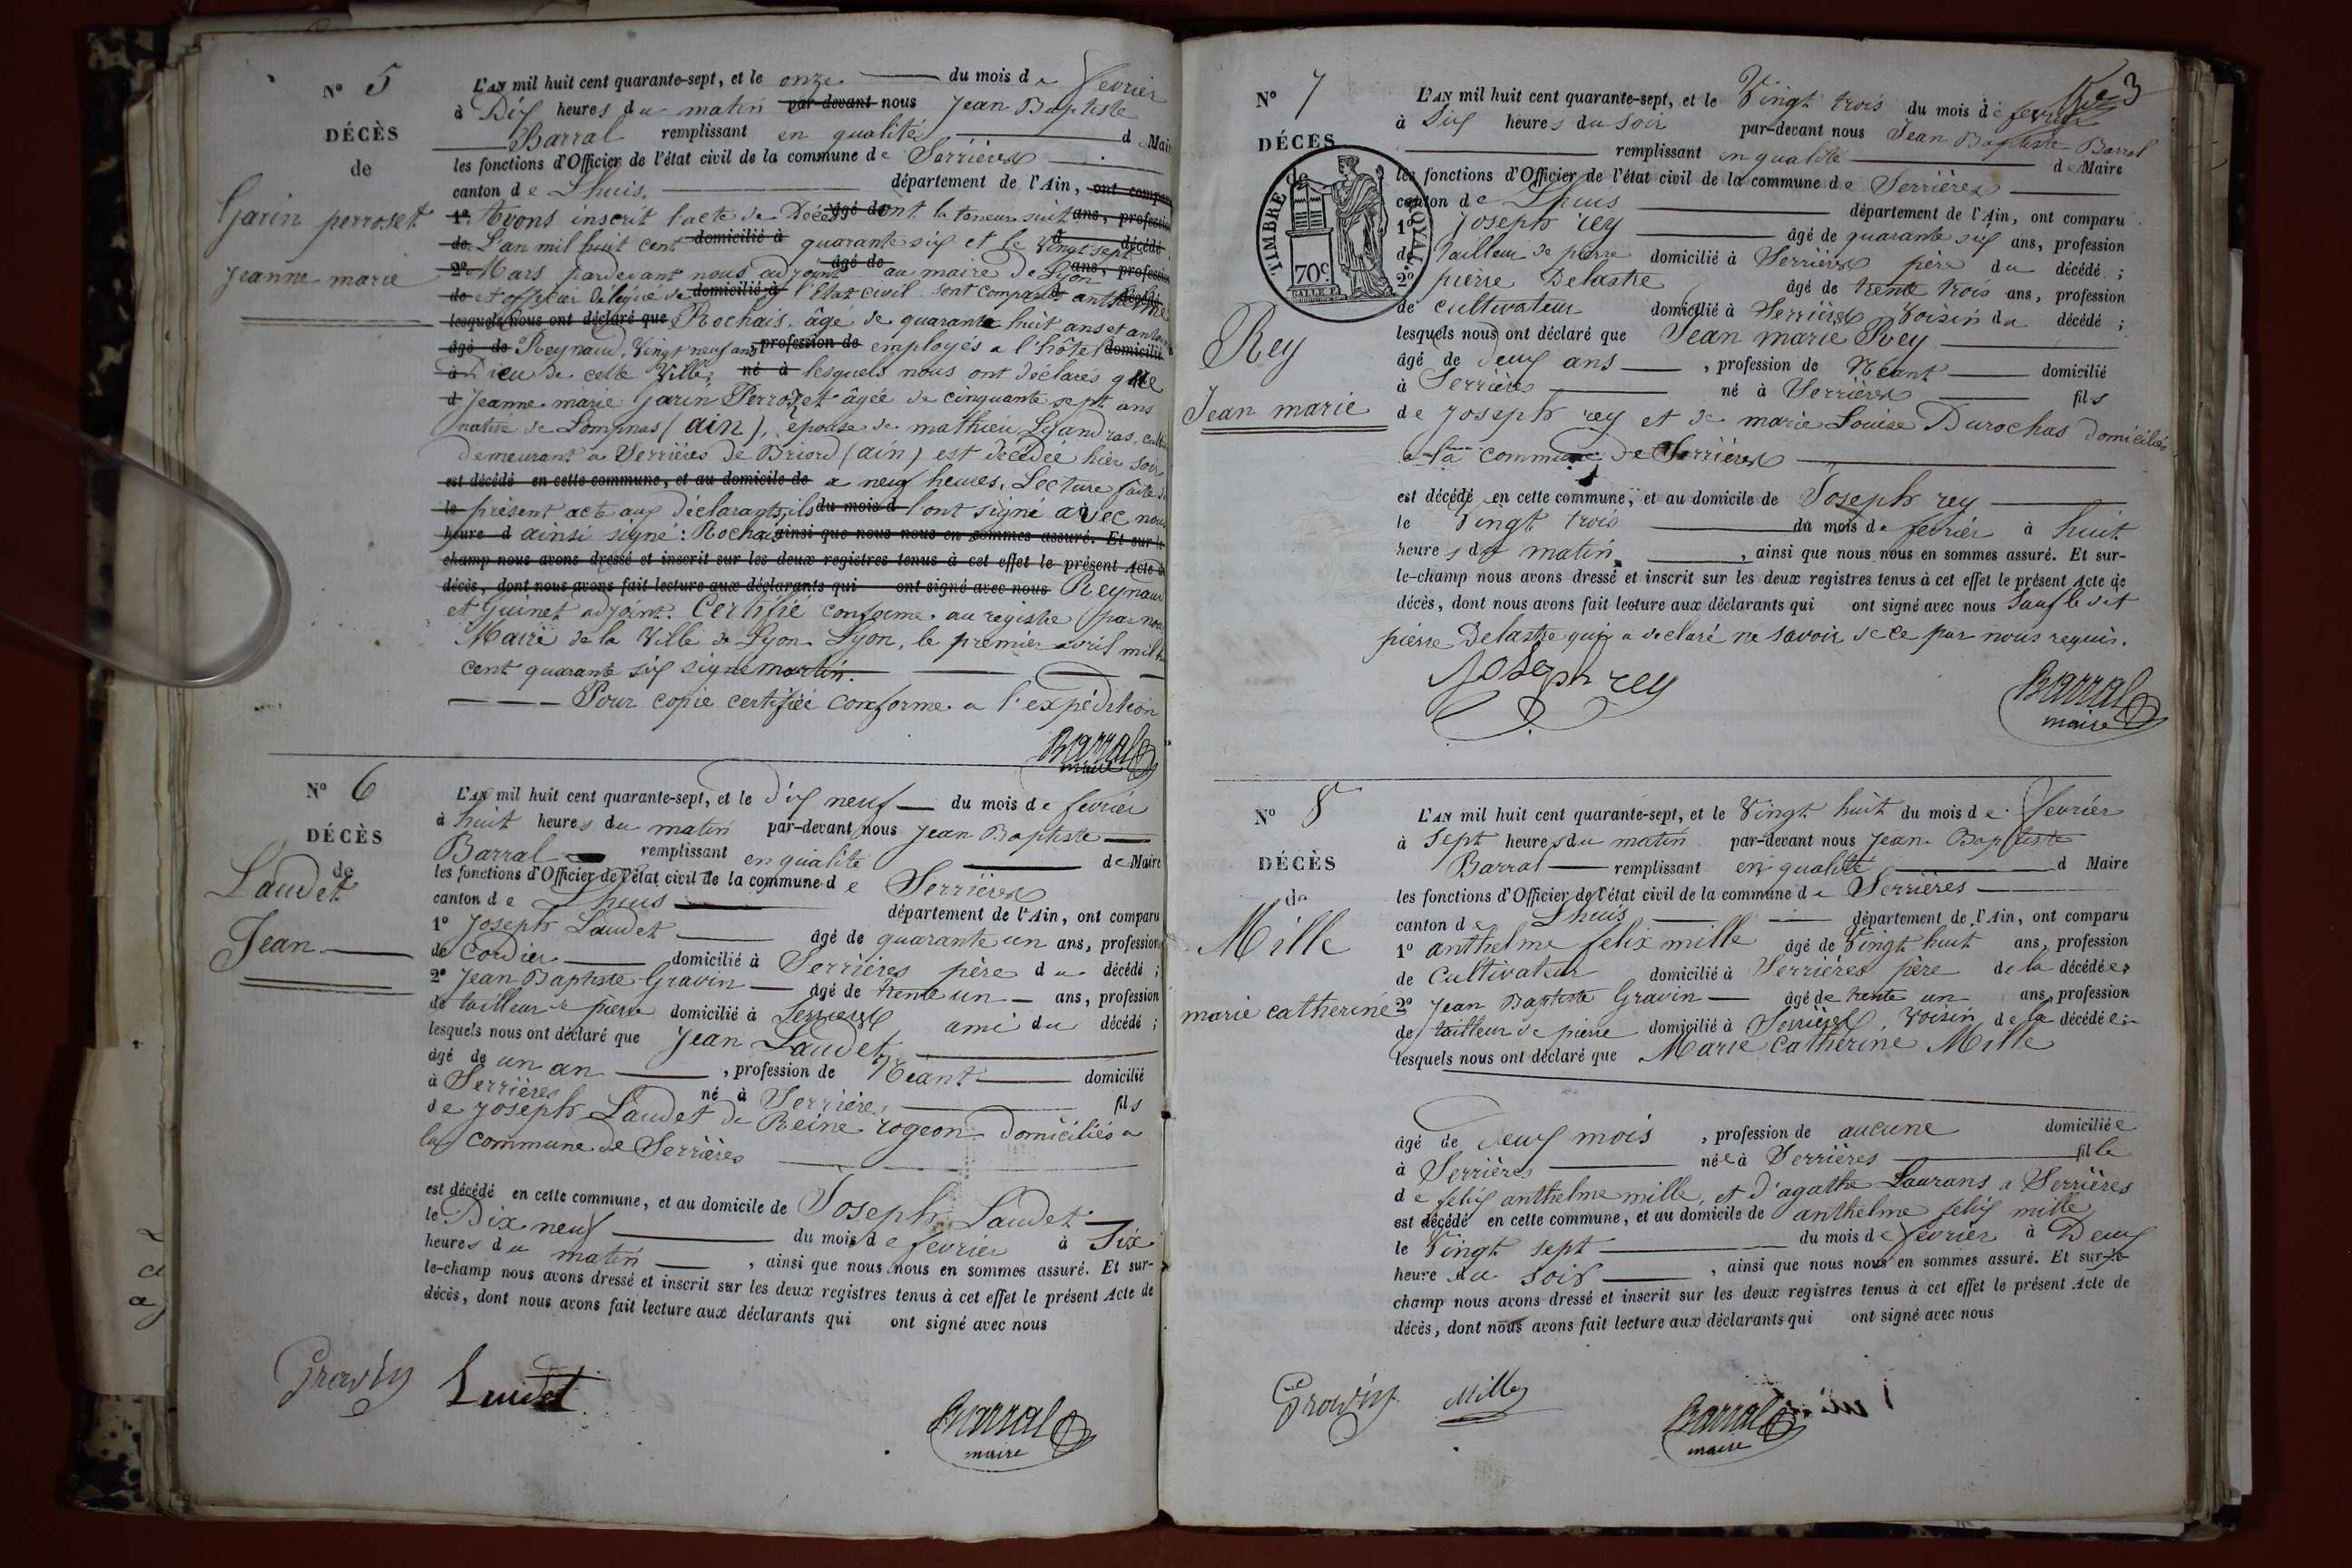 N° 5
DÉCÈS
de
Garin perroset
Jeanne marie
L'AN mil huit cent quarante-sept, et le onze du mois de fevrier
à Dix heures du matin par-devant nous Jean Baptiste
Barral remplissant en qualité d Maire
les fonctions d'Officier de l'état civil de la commune de Serrières
canton de Lhuis, département de l'Ain, ont comparu
1° Avons inscrit l'acte de Décès âgé de dont la teneur suit ans, profession
de L'an mil huit cent domicilié à quarante six et le Vingt sept décédé
2° Mars pardevant nous adjoint âgé de au maire de Lyon ans, profession
de et officier délégué de domicilié à l'Etat civil sont comparus anthelme
lesquels nous ont déclaré que Rochais, âgé de quarante huit ans et antoine
âgé de Reynaud, Vingt neuf ans, profession de employés a l'hôtel domicilié
à Dieu de cette Ville, né à lesquels nous ont déclarés que
d Jeanne marie Garin Perrozet âgée de cinquante sept ans
native de Lompnas (ain), épouse de mathieu
demeurant a Serrières de Briord (ain) est décédée hier soir
est décédé en cette commune, et au domicile de a neuf heures. Lecture faite
le présent acte aux déclarants, ils du mois d l'ont signé avec nous
heure d ainsi signé : Rochais ainsi que nous nous en sommes assuré. Et sur-le
champ nous avons dressé et inscrit sur les deux registres tenus à cet effet le présent Acte de
décès, dont nous avons fait lecture aux déclarants qui ont signé avec nous Reynaud
et Guinet adjoint. Certifié conforme au registre par nous
Maire de la Ville de Lyon. Lyon, le premier avril mil
cent quarante six signé martin.
Pour copie certifiée conforme a l'expédition
Barral
maire
N° 6
DÉCÈS
de
Laudet
Jean
L'AN mil huit cent quarante-sept, et le dix neuf du mois de fevrier
à huit heures du matin par-devant nous Jean Baptiste
Barral remplissant en qualité de Maire
les fonctions d'Officier de l'état civil de la commune de Serrières
canton de Lhuis département de l'Ain, ont comparu
1° Joseph Laudet âgé de quarante un ans, profession
de Cordier domicilié à Serrières père du décédé ;
2° Jean Baptiste Gravin âgé de trente un ans, profession
de tailleur de pierre domicilié à Serrières ami du décédé ;
lesquels nous ont déclaré que Jean Laudet
âgé de un an , profession de Néant domicilié
à Serrières né à Serrières fils
de Joseph Laudet de Reine rogeon domiciliés a
la commune de Serrières
est décédé en cette commune, et au domicile de Joseph Laudet
le Dix neuf du mois de fevrier à Six
heures du matin , ainsi que nous nous en sommes assuré. Et sur-
le-champ nous avons dressé et inscrit sur les deux registres tenus à cet effet le présent Acte de
décès, dont nous avons fait lecture aux déclarants qui ont signé avec nous
Gravin Laudet
Barral
maire
3
N° 7
DÉCÈS
de
TIMBRE ROYAL
70c
Rey
Jean marie
L'AN mil huit cent quarante-sept, et le Vingt trois du mois de fevrier
à Six heures du soir par-devant nous Jean Baptiste Barral
remplissant en qualité de Maire
les fonctions d'Officier de l'état civil de la commune de Serrières
canton de Lhuis département de l'Ain, ont comparu
1° Joseph rey âgé de quarante six ans, profession
de tailleur de pierre domicilié à Serrières père du décédé ;
2° pierre Delastre âgé de trente trois ans, profession
de cultivateur domicilié à Serrières Voisin du décédé ;
lesquels nous ont déclaré que Jean marie Rey
âgé de deux ans , profession de Néant domicilié
à Serrières né à Serrières fils
de Joseph rey et de marie Louise Durochas domiciliés
a la commune de Serrières
est décédé en cette commune, et au domicile de Joseph rey
le Vingt trois du mois de fevrier à huit
heures du matin , ainsi que nous nous en sommes assuré. Et sur-
le-champ nous avons dressé et inscrit sur les deux registres tenus à cet effet le présent Acte de
décès, dont nous avons fait lecture aux déclarants qui ont signé avec nous Sauf le dit
pierre Delastre qui a declaré ne savoir de ce par nous requis.
Joseph rey
Barral
maire
N° 8
DÉCÈS
de
Mille
marie catherine
L'AN mil huit cent quarante-sept, et le Vingt huit du mois de fevrier
à Sept heures du matin par-devant nous Jean Baptiste
Barral remplissant en qualité d Maire
les fonctions d'Officier de l'état civil de la commune de Serrières
canton de Lhuis département de l'Ain, ont comparu
1° anthelme felix mille âgé de Vingt huit ans, profession
de Cultivateur domicilié à Serrières père de la décédée ;
2° Jean Baptiste Gravin âgé de trente un ans, profession
de tailleur de pierre domicilié à Serrières, Voisin de la décédée ;
lesquels nous ont déclaré que Marie Catherine Mille
âgé de deux mois , profession de aucune domiciliée
à Serrières née à Serrières fille
de felix anthelme mille, et d'agathe Laurans a Serrières
est décédé en cette commune, et au domicile de anthelme felix mille
le Vingt sept du mois de fevrier à Deux
heure du soir , ainsi que nous nous en sommes assuré. Et sur-le-
champ nous avons dressé et inscrit sur les deux registres tenus à cet effet le présent Acte de
décès, dont nous avons fait lecture aux déclarants qui ont signé avec nous
Gravin Mille
Barral
maire